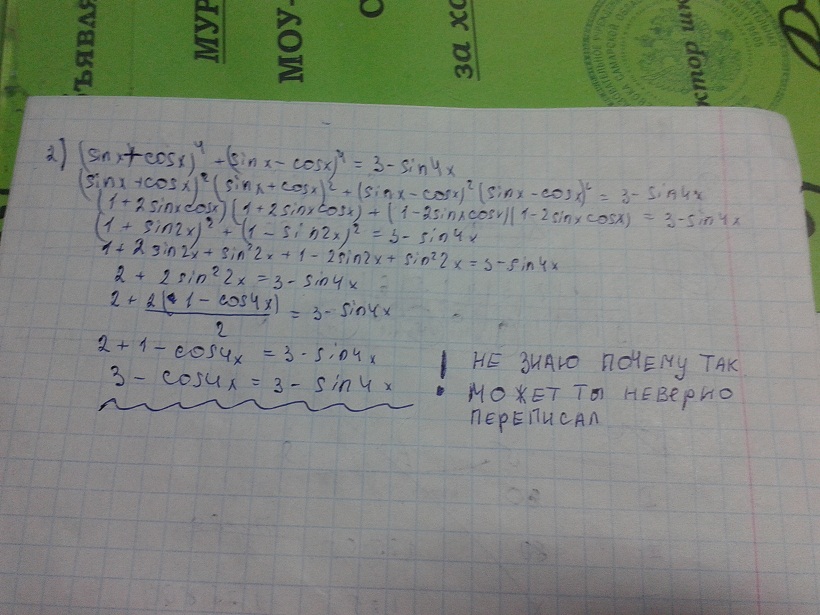 ЪЯВЛЯ
МУР
МОУ-
С
за хо
ктор шк
2) (sinx+cosx)^4 + (sinx - cosx)^4 = 3 - sin4x
(sinx + cosx)^2 (sinx + cosx)^2 + (sinx - cosx)^2 (sinx - cosx)^2 = 3 - sin4x
(1 + 2sinxcosx) (1 + 2sinxcosx) + (1 - 2sinxcosx)(1 - 2sinxcosx) = 3 - sin4x
(1 + sin2x)^2 + (1 - sin2x)^2 = 3 - sin4x
1 + 2sin2x + sin^2 2x + 1 - 2sin2x + sin^2 2x = 3 - sin4x
2 + 2sin^2 2x = 3 - sin4x
2 + 2(1 - cos4x)/2 = 3 - sin4x
2 + 1 - cos4x = 3 - sin4x
3 - cos4x = 3 - sin4x
! НЕ ЗНАЮ ПОЧЕМУ ТАК
МОЖЕТ ТЫ НЕВЕРНО
ПЕРЕПИСАЛ